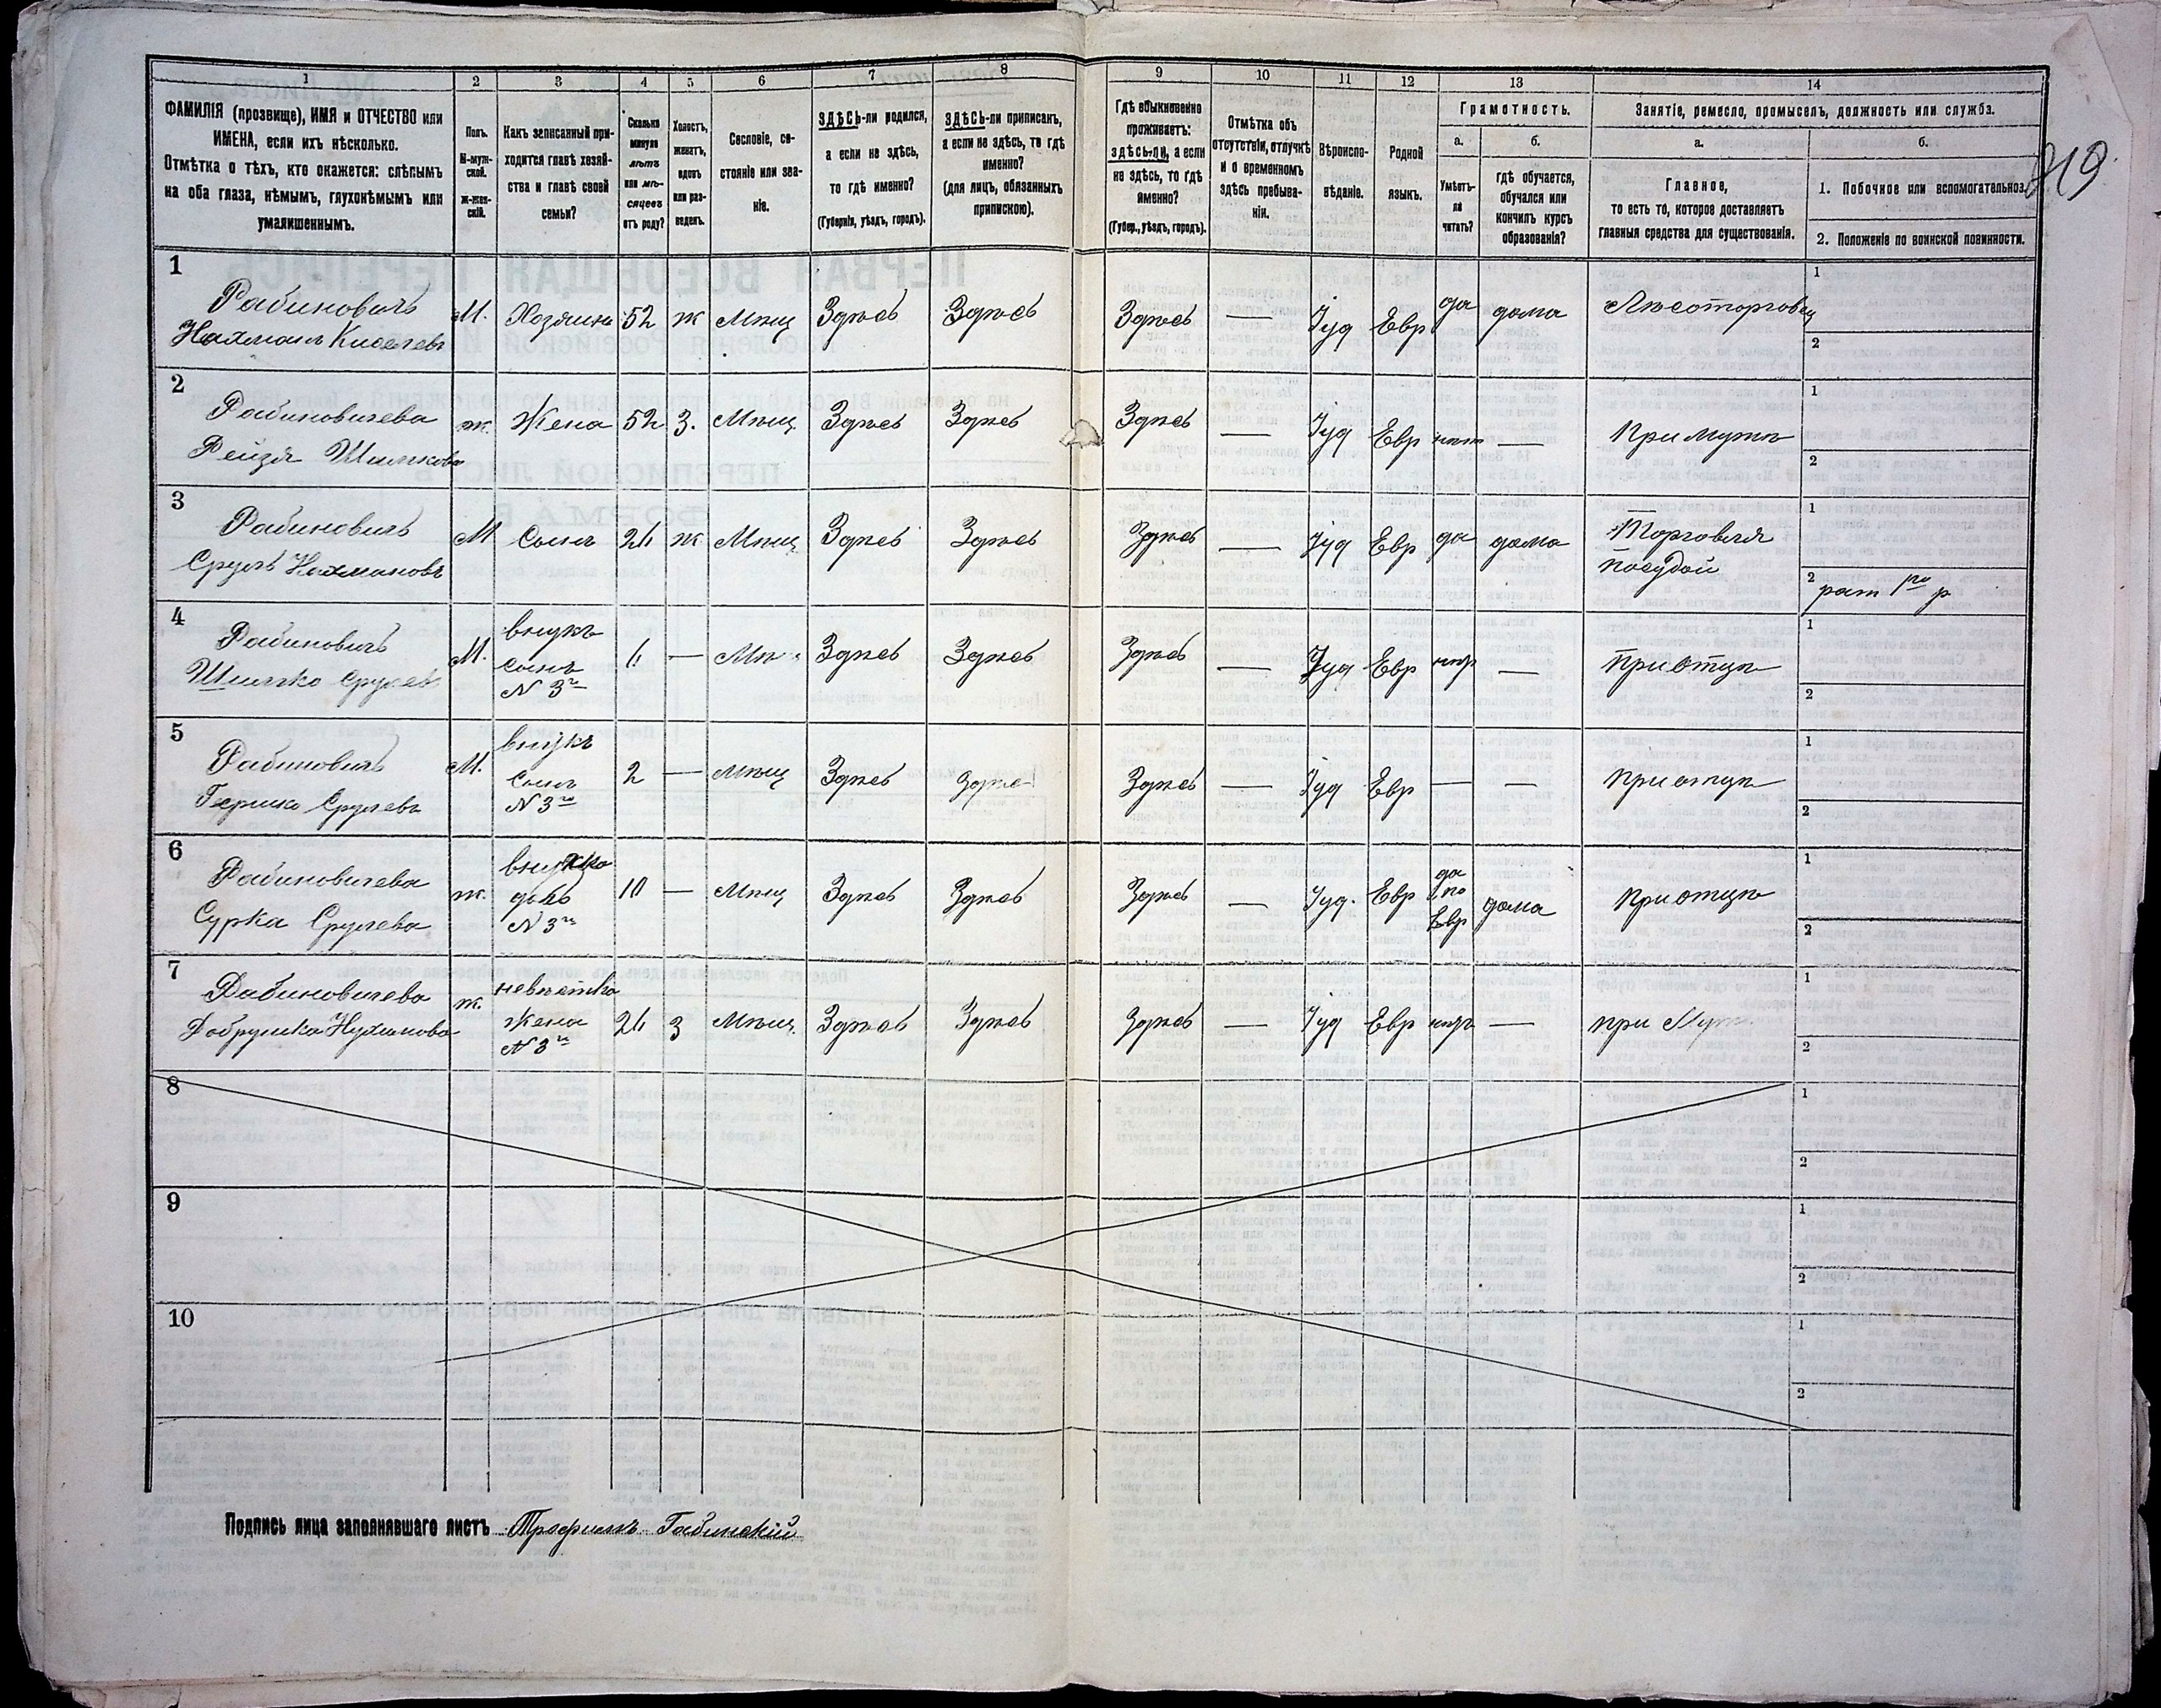 1 2 3 4 5 6 7 8 9 10 11 12 13 14
ФАМИЛІЯ (прозвище), ИМЯ и ОТЧЕСТВО или
ИМЕНА, если ихъ нѣсколько.
Отмѣтка о тѣхъ, кто окажется: слѣпымъ
на оба глаза, нѣмымъ, глухонѣмымъ или
умалишеннымъ.
Полъ.
М-муж-
ской.
ж-жен-
скій.
Какъ записанный при-
ходится главѣ хозяй-
ства и главѣ своей
семьи?
Сколько
минуло
лѣтъ
или мѣ-
сяцевъ
отъ роду?
Холостъ,
женатъ,
вдовъ
или раз-
веденъ.
Сословіе, со-
стояніе или зва-
ніе.
ЗДѢСЬ-ли родился,
а если не здѣсь,
то гдѣ именно?
(Губернія, уѣздъ, городъ).
ЗДѢСЬ-ли приписанъ,
а если не здѣсь, то гдѣ
именно?
(для лицъ, обязанныхъ
припискою).
Гдѣ обыкновенно
проживаетъ:
здѣсь-ли, а если
не здѣсь, то гдѣ
именно?
(Губер., уѣздъ, городъ).
Отмѣтка объ
отсутствіи, отлучкѣ
и о временномъ
здѣсь пребыва-
ніи.
Вѣроиспо-
вѣданіе.
Родной
языкъ.
Грамотность.
а.
Умѣетъ-
ли
читать?
б.
гдѣ обучается,
обучался или
кончилъ курсъ
образованія?
Занятіе, ремесло, промыселъ, должность или служба.
а.
Главное,
то есть то, которое доставляетъ
главныя средства для существованія.
б.
1. Побочное или вспомогательное.
2. Положеніе по воинской повинности.
1
Рабиновичъ
Нахманъ Киселевъ
М. Хозяинъ 52 ж Мѣщ Здѣсь Здѣсь Здѣсь — Іуд Евр да дома Лѣсоторговец
1
2
2
Рабиновичева
Рейзя Шимкова
ж. Жена 52 З. Мѣщ Здѣсь Здѣсь Здѣсь — Іуд Евр нѣт — При мужѣ
1
2
3
Рабиновичъ
Сруль Нахмановъ
М Сынъ ж Мѣщ Здѣсь Здѣсь Здѣсь — Іуд Евр да дома Торговля
посудой
1
2 рат 1го р
4
Рабиновичъ
Шимко Срулевъ
М. внукъ
сынъ
N 3го
— Мѣ Здѣсь Здѣсь Здѣсь — Іуд Евр — При отцѣ
1
2
5
Рабиновичъ
Гершко Срулевъ
М. внукъ
Сынъ
N 3го
2 — Мѣщ Здѣсь Здѣс Здѣсь — Іуд Евр — — при отцѣ
1
2
6
Рабиновичева
Сурка Срулева
ж. внучка
дочь
N 3го
10 — Мѣщ Здѣсь Здѣсь Здѣсь — Іуд. Евр да
по
Евр
дома при отцѣ
1
2
7
Рабиновичева
Добрушка Нухимова
ж. невѣстка
Жена
N 3го
З Мѣщ. Здѣсь Здѣсь Здѣсь — Іуд Евр — при Муж
1
2
8
1
2
9
1
2
10
1
2
Подпись лица заполнявшаго листъ Трофимъ Габинскій